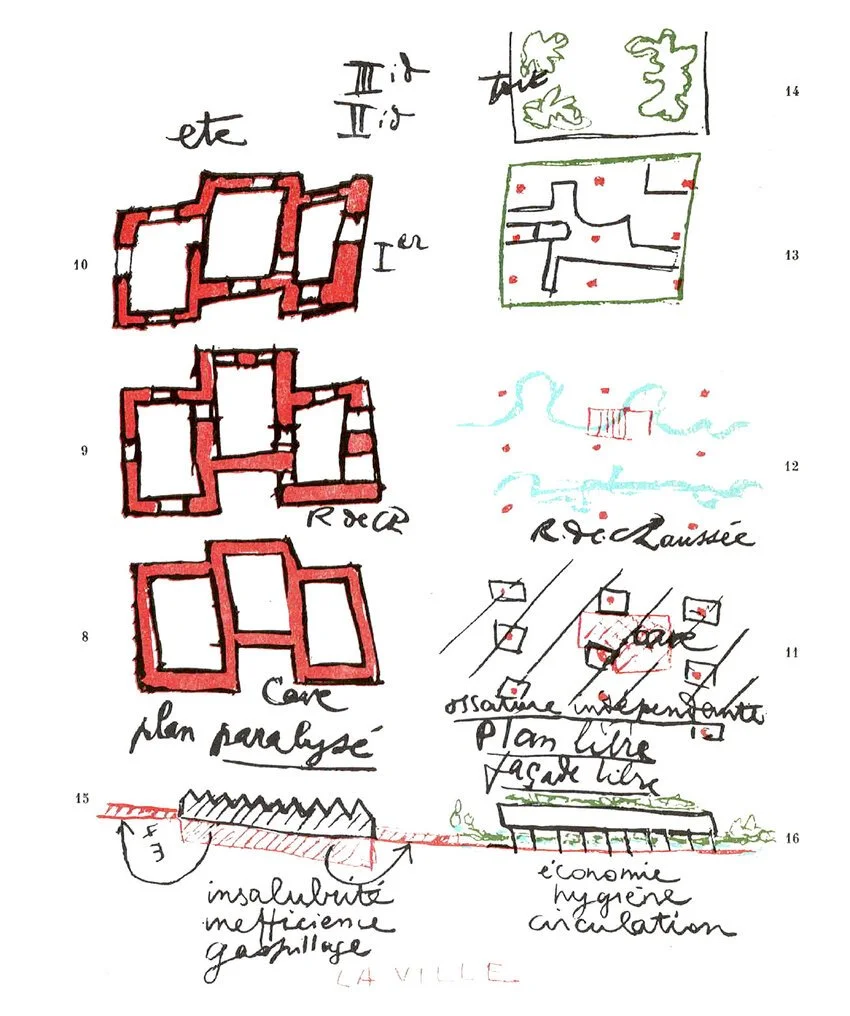 III id
II id
etc
toit
14
10
I er
13
9
R de Ch
12
R. de. chaussée
8
Cave
plan paralysé
cave
11
ossature indépendante
plan libre
façade libre
15
16
insalubrité
inefficience
gaspillage
économie
hygiène
circulation
LA VILLE